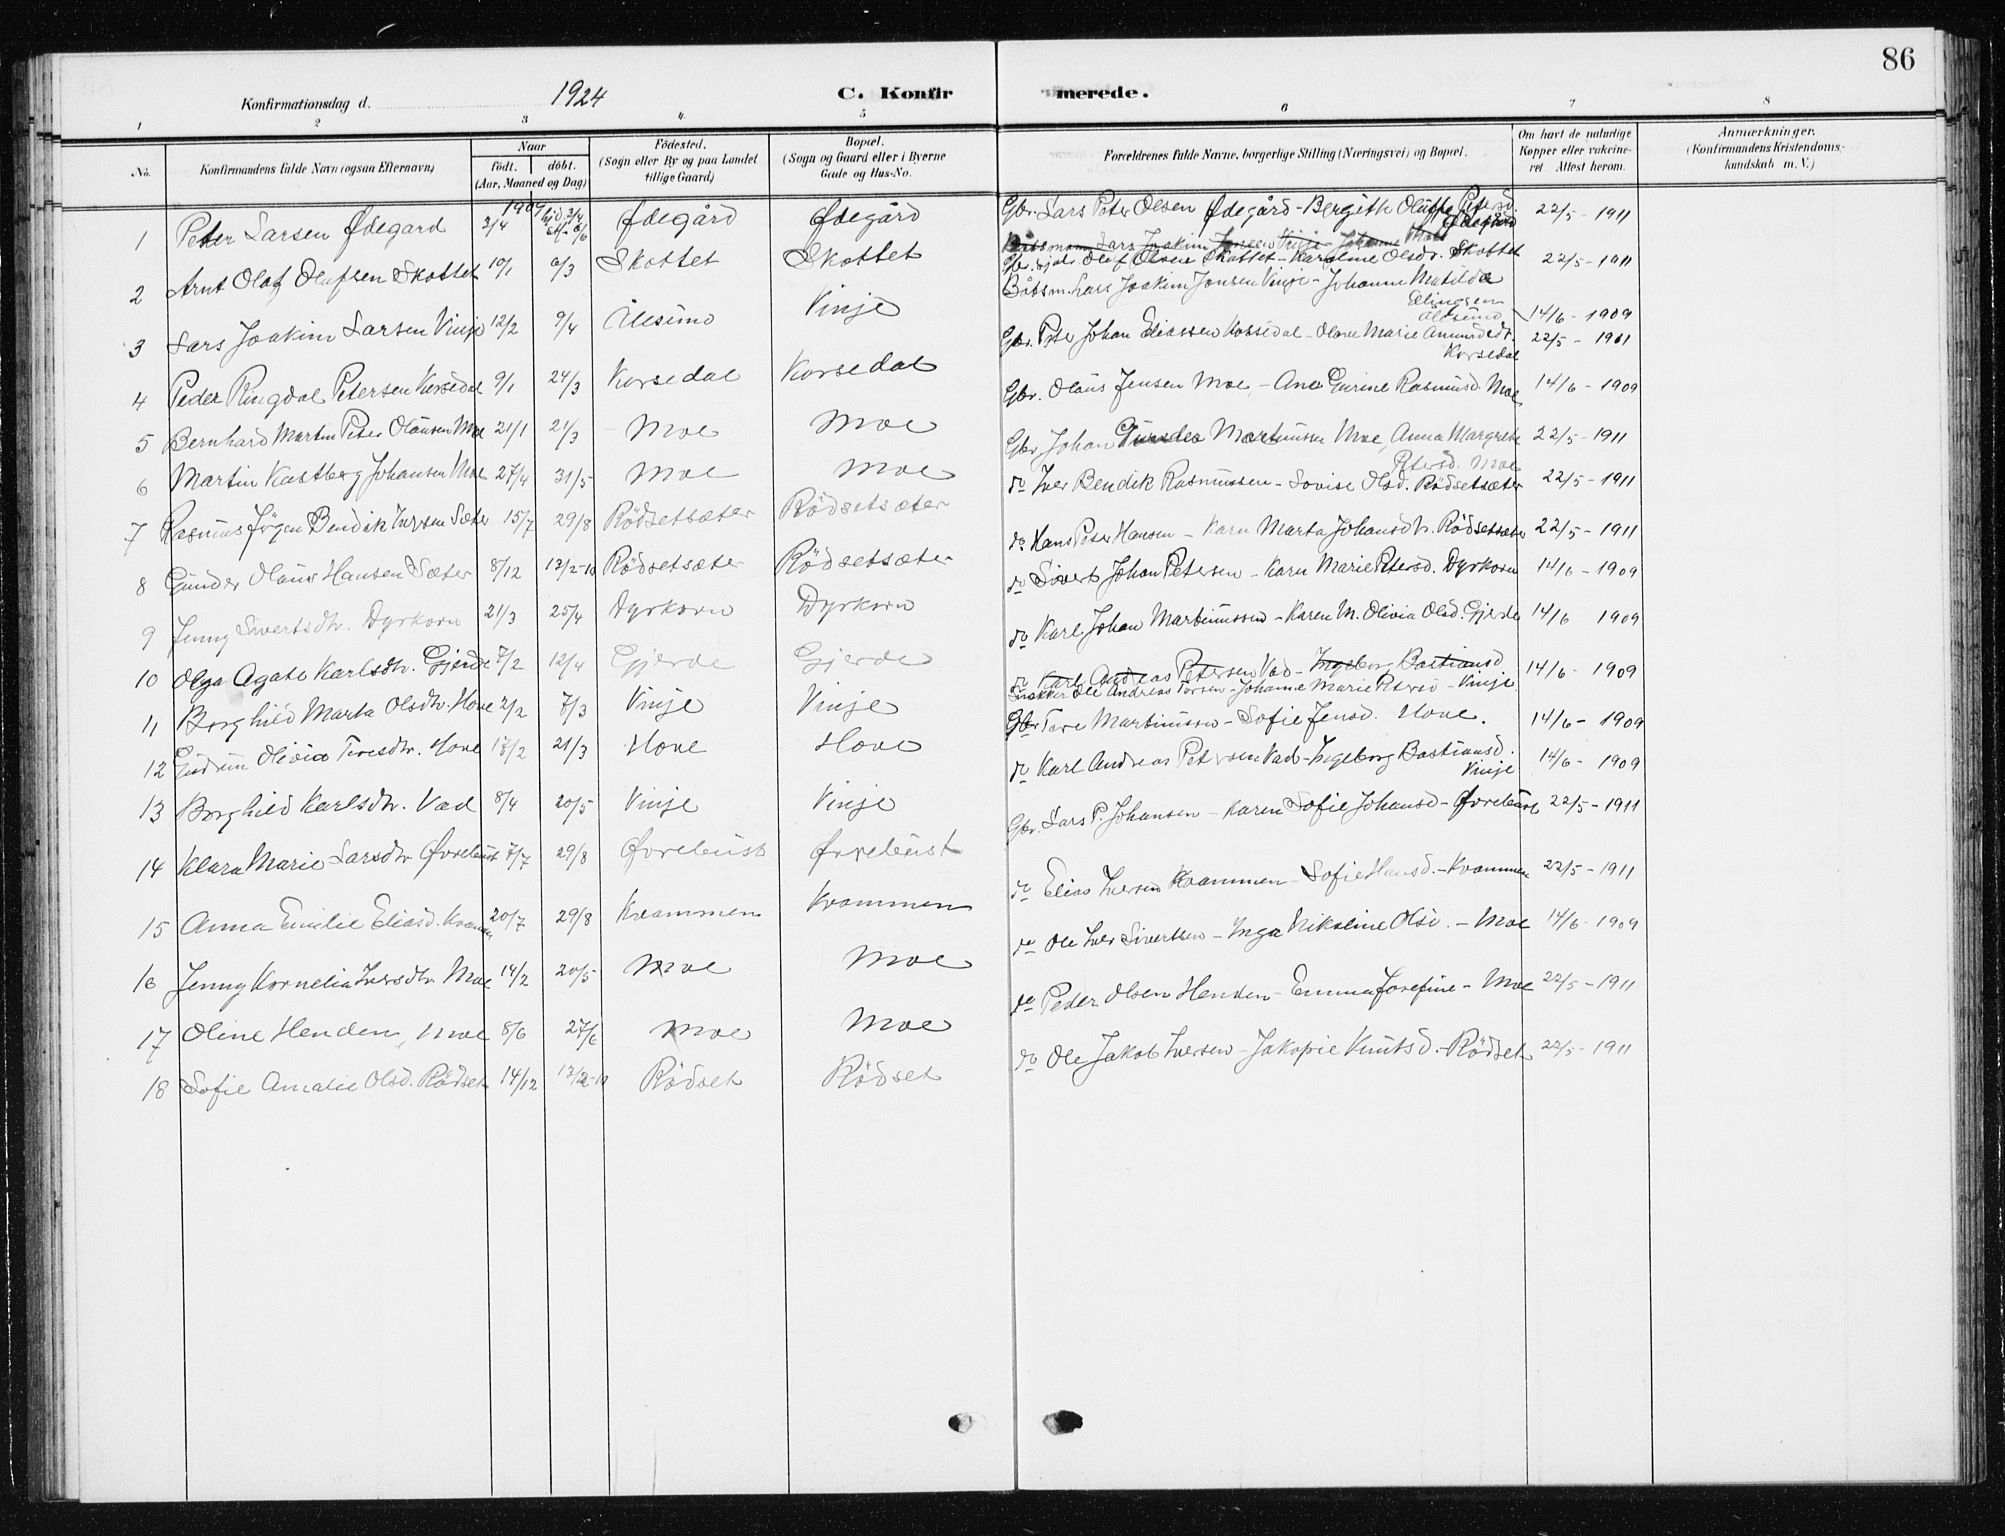 86
Konfirmationsdag d. 1924 C. Konfirmerede.
1 2 3 4. 5 6 7 8
No. Konfirmandens fulde Navn (ogsaa Efternavn) Naar født. døbt. (Aar, Maaned og Dag) Fødested. (Sogn eller By og paa Landet tillige Gaard.) Bopæl. (Sogn og Gaard eller i Byerne Gade og Hus-No. Forældrenes fulde Navne, borgerlige Stilling (Næringsvei) og Bopæl. Om havt de naturlige Kopper eller vaccineret. Attest herom. Anmærkninger. (Konfirmandens Kristendomskundskab m. V.)
1909
1 Peter Larsen Ødegard 3/4 Ødegård Ødegård Gbr. Lars Peter Olsen Ødegård - Bergitte Oluffe Petersd. Ødegård 22/5 - 1911
Lars Joakim Jonsen Vinje - Johanne
2 Arnt Olaf Olufsen Skottet 10/1 6/3 Skottet Skottet Oluf Olsen Skottet - Karoline Olsdr. Skottet 22/5 - 1911
3 Lars Joakim Larsen Vinje 12/2 9/4 Ålesund Vinje Båtsm. Lars Joakim Jonsen Vinje - Johanne Matilde Elingsen Ålesund 14/6 - 1909
4 Peder Ringdal Petersen Korsedal 9/1 24/3 Korsedal Korsedal Gbr. Peter Johan Eliassen Korsedal - Oline Marie Korsedal 22/5 - 1911
5 Bernhard Martin Peter Olausen Moe 21/1 21/3 Moe Moe Gbr. Olaus Jensen Moe - Ane Gurine Rasmusd. Moe 14/6 - 1909
6 Martin Kastberg Johansen Moe 27/4 31/5 Moe Moe Gbr Johan Martinusen Moe, Anna Margrete Petersd. Moe 22/5 - 1911
7 Rasmus Jørgen Bendik Iversen Sæter 15/7 29/8 Rödsetsæter Rödsetsæter do Iver Bendik Rasmussen - Lovise Olsd. Rödsetsæter 22/5 - 1911
8 Gunder Olaus Hansen Sæter 8/12 13/2-10 Rödsetsæter Rödsetsæter do Hans Peter Hansen - Karn Marta Johansdtr. Rödsetsæter 22/5 - 1911
9 Jenny Sivertsdtr. Dyrkorn 21/3 25/4 Dyrkorn Dyrkorn do Sivert Johan Petersen - Karn Marie Petersd. Dyrkorn 14/6 - 1909
10 Olga Agate Karlsdtr. Gjerde 7/2 12/4 Gjerde Gjerde do Karl Johan Martinussen - Karen M. Olivia Olsd. Gjerde 14/6 1909
do Karl Andreas Petersen Vad - Ingeborg Bastiansd
11 Borghild Marta Olsdtr. Hove 2/2 7/3 Vinje Vinje Ole Andreas Torsen - Johanne Marie Petersd - Vinje 14/6 - 1909
12 Gudrun Olivia Toresdtr. Hove 17/2 21/3 Hove Hove Gbr Tore Martinussen - Sofie Jensd. Hove. 14/6 - 1909
13 Borghild Karlsdtr. Vad 8/4 20/5 Vinje Vinje do Karl Andreas Petersen Vad - Ingeborg Bastiansd. Vinje 14/6 - 1909
14 Klara Marie Larsdtr Øvrebust 7/7 29/8 Øvrebust Øvrebust Gbr. Lars P. Johansen - Karen Sofie Johansd - Øvrebust 22/5 - 1911
15 Anna Emilie Eliasd. Kvammen 20/7 29/8 Kvammen Kvammen do Elias Iversen Kvammen - Sofie Hansd. - Kvammen 22/5 - 1911
16 Jenny Kornelia Iversdtr Moe 14/2 20/5 Moe Moe do Ole Iver Sivertsen - Inga Nikoline Olsd. - Moe 14/6 - 1909
17 Oline Henden, Moe 8/6 27/6 Moe Moe do Peder Olsen Henden - Emma Josefine - Moe 22/5 - 1911
18 Sofie Amalie Olsd. Rödset 14/12 13/2-10 Rödset Rödset do Ole Jakob Iversen - Jakopie Knutsd. - Rödset 22/5 - 1911